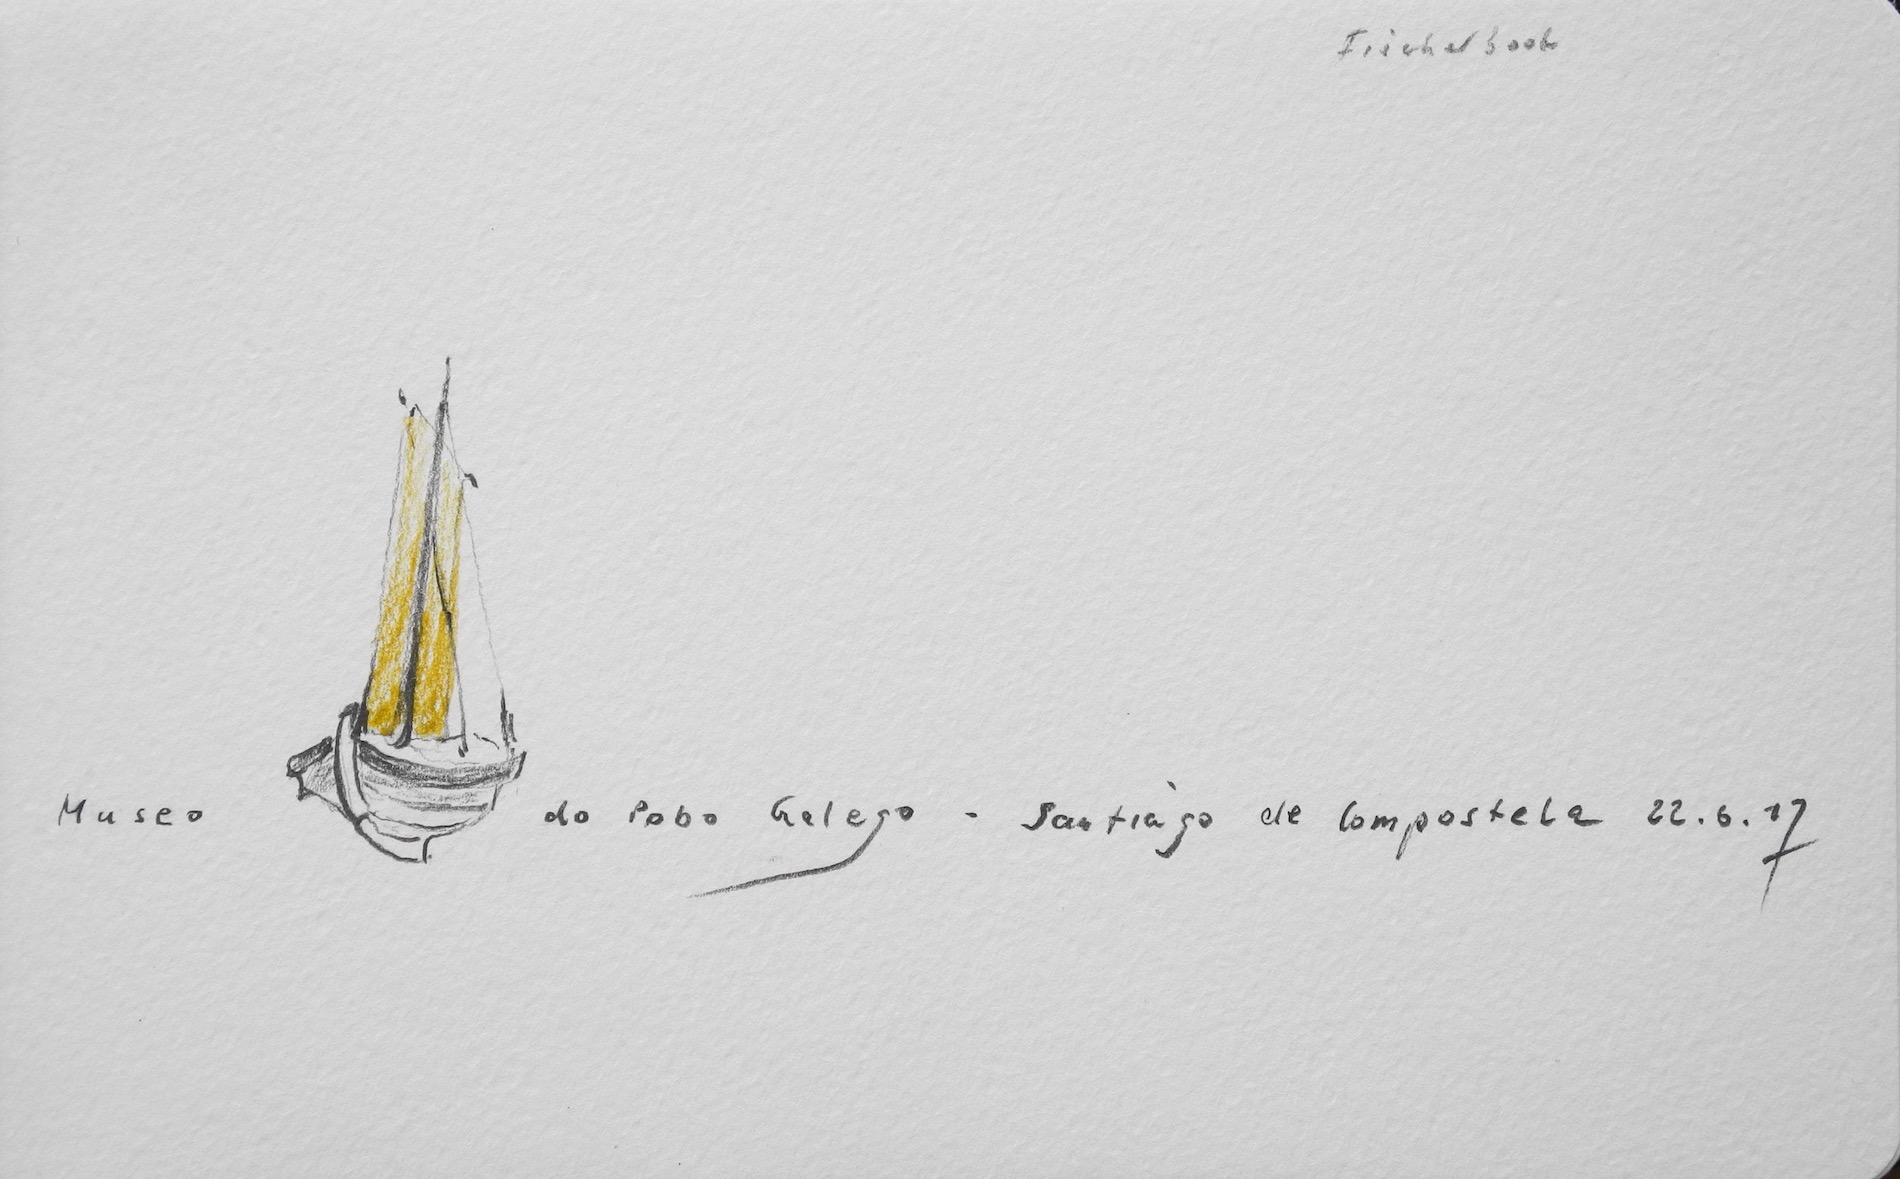 Fischerboot
Museo do Pobo Galego - Santiàgo de Compostela 22.6.17